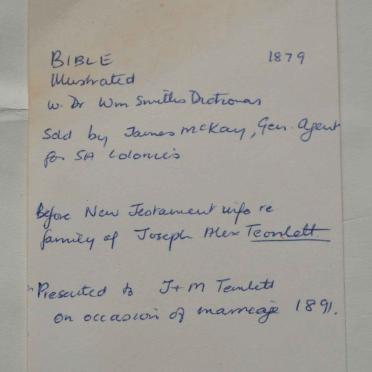 BIBLE 1879
Illustrated
w. Dr Wm Smiths Dictionary
Sold by James McKay, Gen. Agent
for SA Colonies
Before New Testament info re
family of Joseph Alex Temlett
Presented to J + M Temlett
on occasion of marriage 1891.